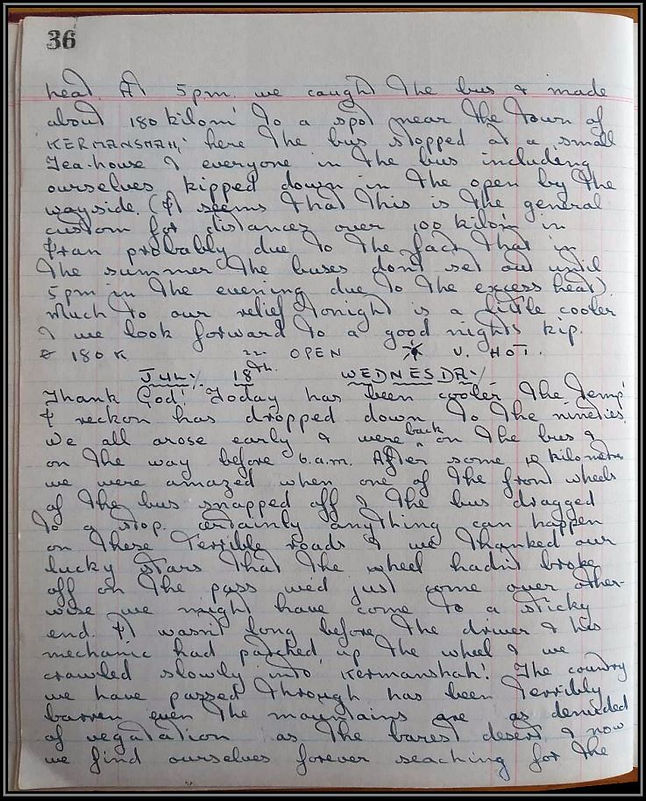 36
heat. At 5pm. we caught the bus & made
about 180 kilom' to a spot near the town of
KERMANSHAH; here the bus stopped at a small
Tea-house & everyone in the bus including
ourselves kipped down in the open by the
wayside. (It seems that this is the general
custom for distances over 100 kilom in
Iran probably due to the fact that in
the summer the buses don't set out until
5pm in the evening due to the excess heat).
Much to our relief tonight is a little cooler
& we look forward to a good nights kip.
180 K in OPEN V. HOT.
JULY. 18th. WEDNESDAY.
Thank God! Today has been cooler the temp'
I reckon has dropped down to the nineties.
We all arose early & were back on the bus &
on the way before 6.a.m. After some kilometres
we were amazed when one of the front wheels
of the bus snapped off & the bus dragged
to a stop. Certainly anything can happen
on these terrible roads & we thanked our
lucky stars that the wheel hadn't broke
off on the pass we'd just come over other-
wise we might have come to a sticky
end. It wasn't long before the driver & his
mechanic had patched up the wheel & we
crawled slowly into Kermanshah! The country
we have passed through has been terribly
barren even the mountains are as denuded
of vegatation as the barest desert & now
we find ourselves forever seaching for the